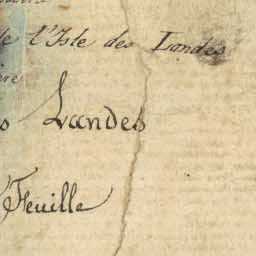 de l'Isle des Landes
s Landes
Feuille